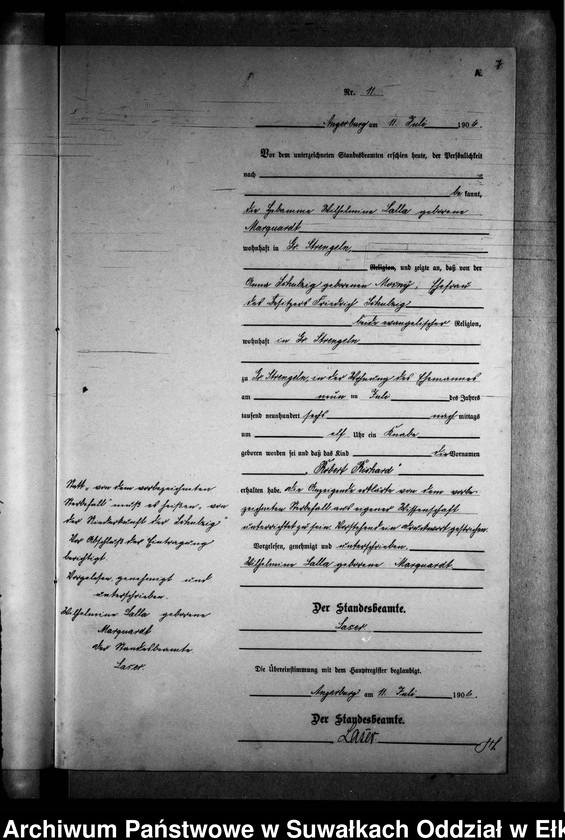 7
A.
Nr. 11
Angerburg am 11. Juli 1906.
Vor dem unterzeichneten Standesbeamten erschien heute, der Persönlichkeit
nach
bekannt,
die Hebamme Wilhelmine Lalla geborene
Marquardt
wohnhaft in Gr. Strengeln,
Religion, und zeigte an, daß von der
Anna Schulzig geborenen Mosny, Ehefrau
des Besitzers Friedrich Schulzig
beide evangelischer Religion,
wohnhaft in Gr. Strengeln
zu Gr. Strengeln, in der Wohnung des Ehemannes
am neun ten Juli des Jahres
tausend neunhundert sechs nach mittags
um elf Uhr ein Knabe
geboren worden sei und daß das Kind die Vornamen
"Robert Richard"
erhalten habe. Die Anzeigende erklärte von dem vorbe-
zeichneten Sterbefall aus eigener Wissenschaft
unterrichtet zu sein. Vorstehend ein Druckwort gestrichen.
Vorgelesen, genehmigt und unterschrieben.
Wilhelmine Lalla geborene Marquardt
Der Standesbeamte.
Laser.
Die Übereinstimmung mit dem Hauptregister beglaubigt.
Angerburg am 11. Juli 1906.
Der Standesbeamte.
Statt "von dem vorbezeichneten
Sterbefall" muß es heißen "von
der Niederkunft der Schulzig"
Vor Abschluß der Eintragung
berichtigt.
Vorgelesen, genehmigt und
unterschrieben.
Wilhelmine Lalla geborene
Marquardt
Der Standesbeamte
Laser.
Archiwum Państwowe w Suwałkach Oddział w Ełk